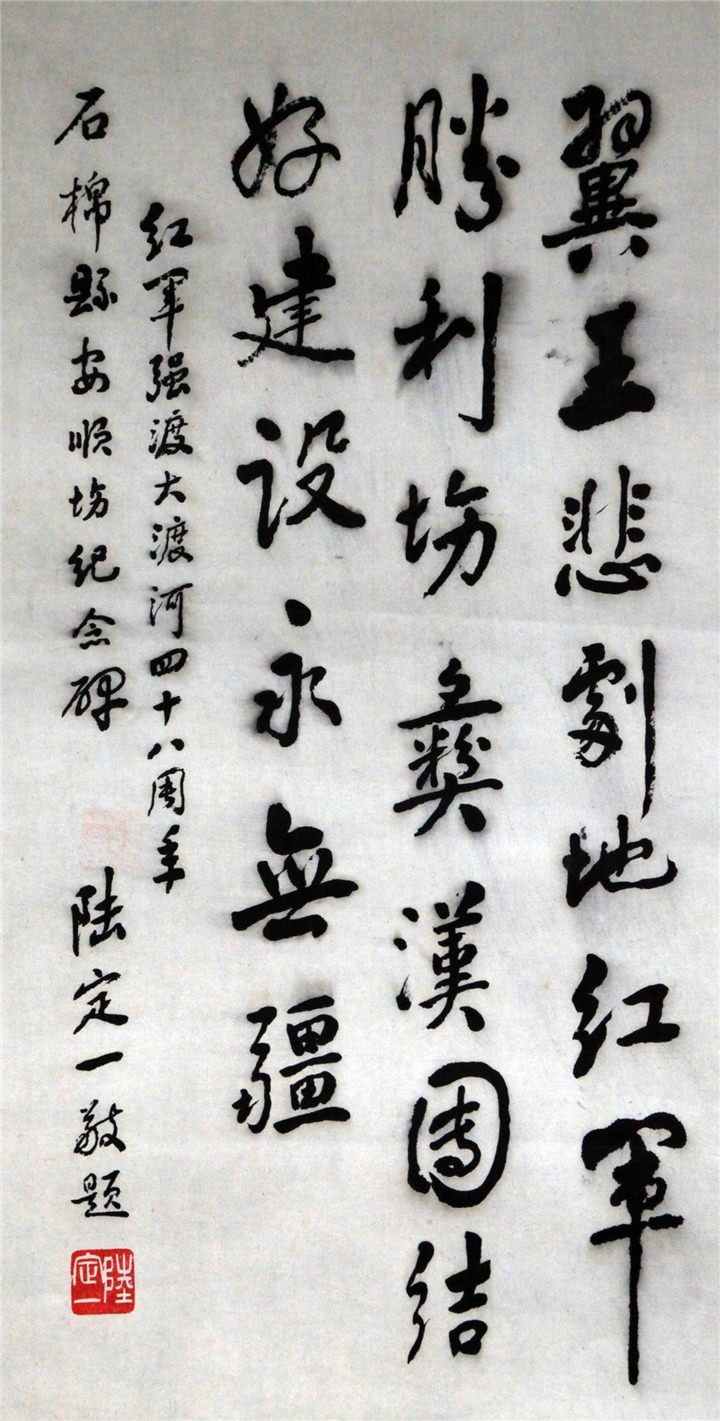 翼王悲劇地红军
勝利場彝漢團结
好建设永無疆
红军强渡大渡河四十八周年
石棉縣安顺場纪念碑
陆定一敬题
陸定一